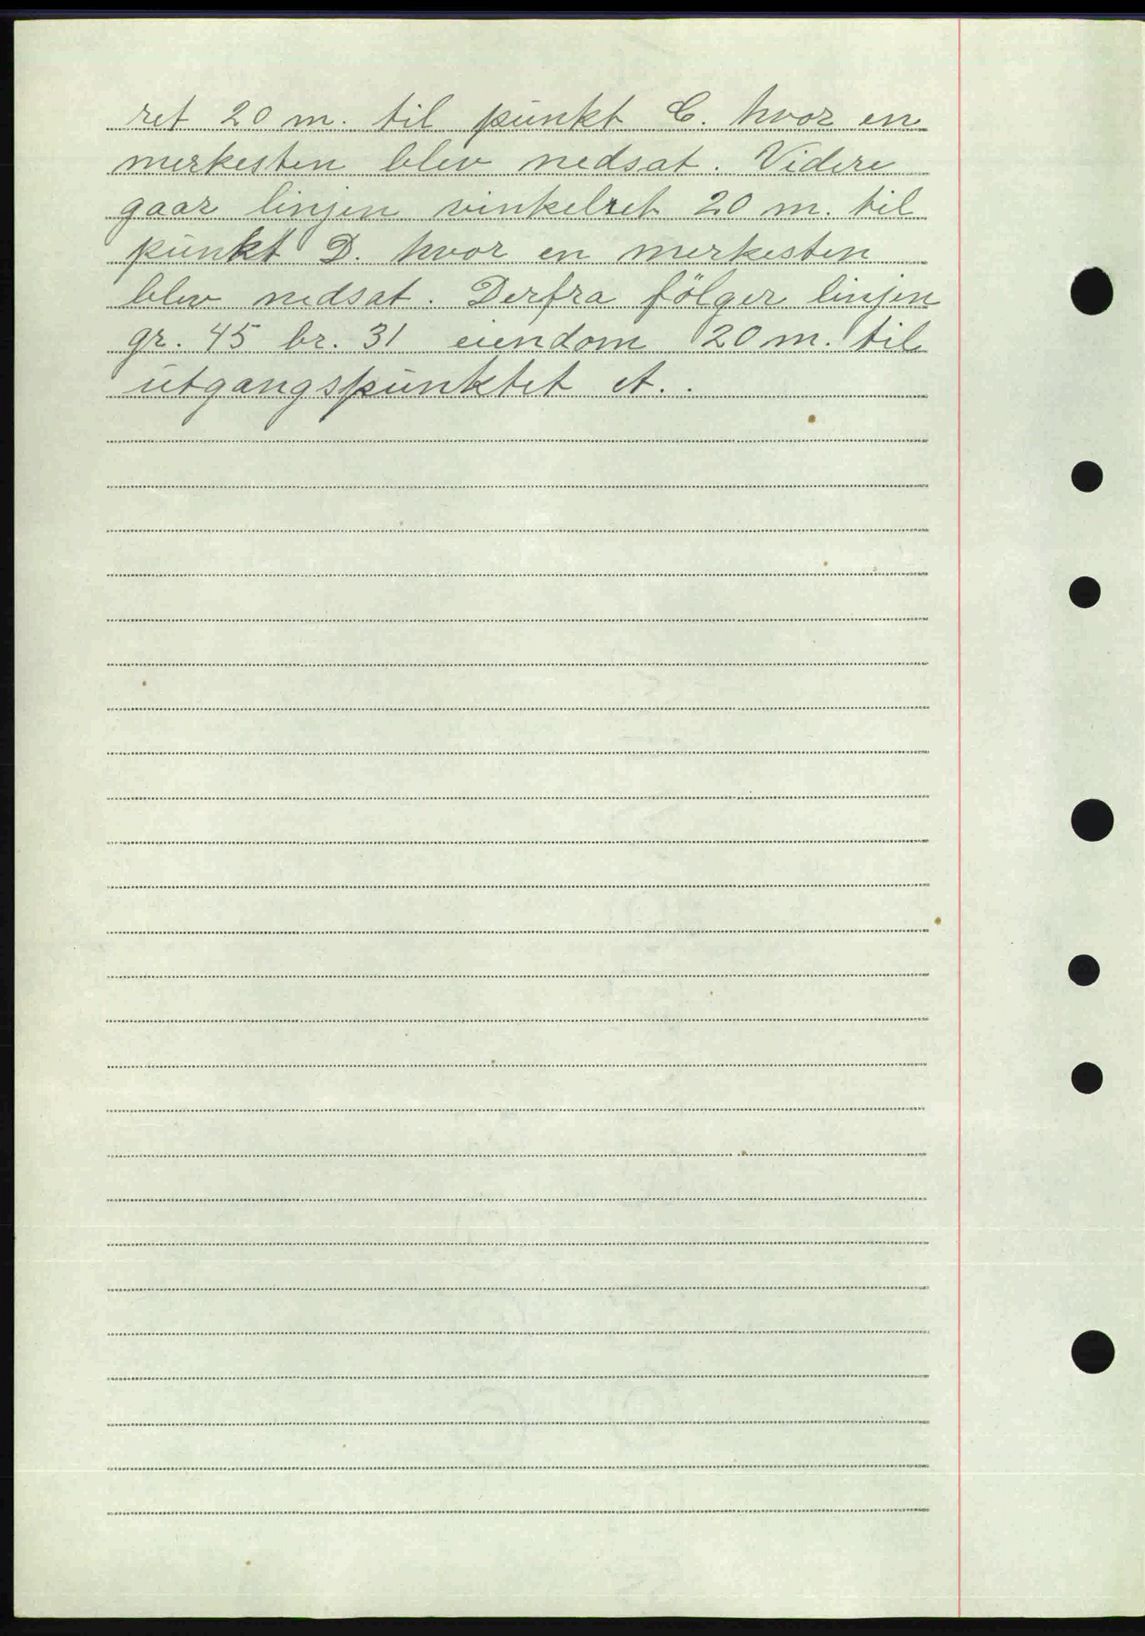 ret 20 m. til punkt C. hvor en
merkesten blev nedsat. Videre
gaar linjen vinkelret 20 m. til
punkt D. hvor en merkesten
blev nedsat. Derfra fölger linjen
gr. 45 br. 31 eiendom 20 m. til
utgangspunktet